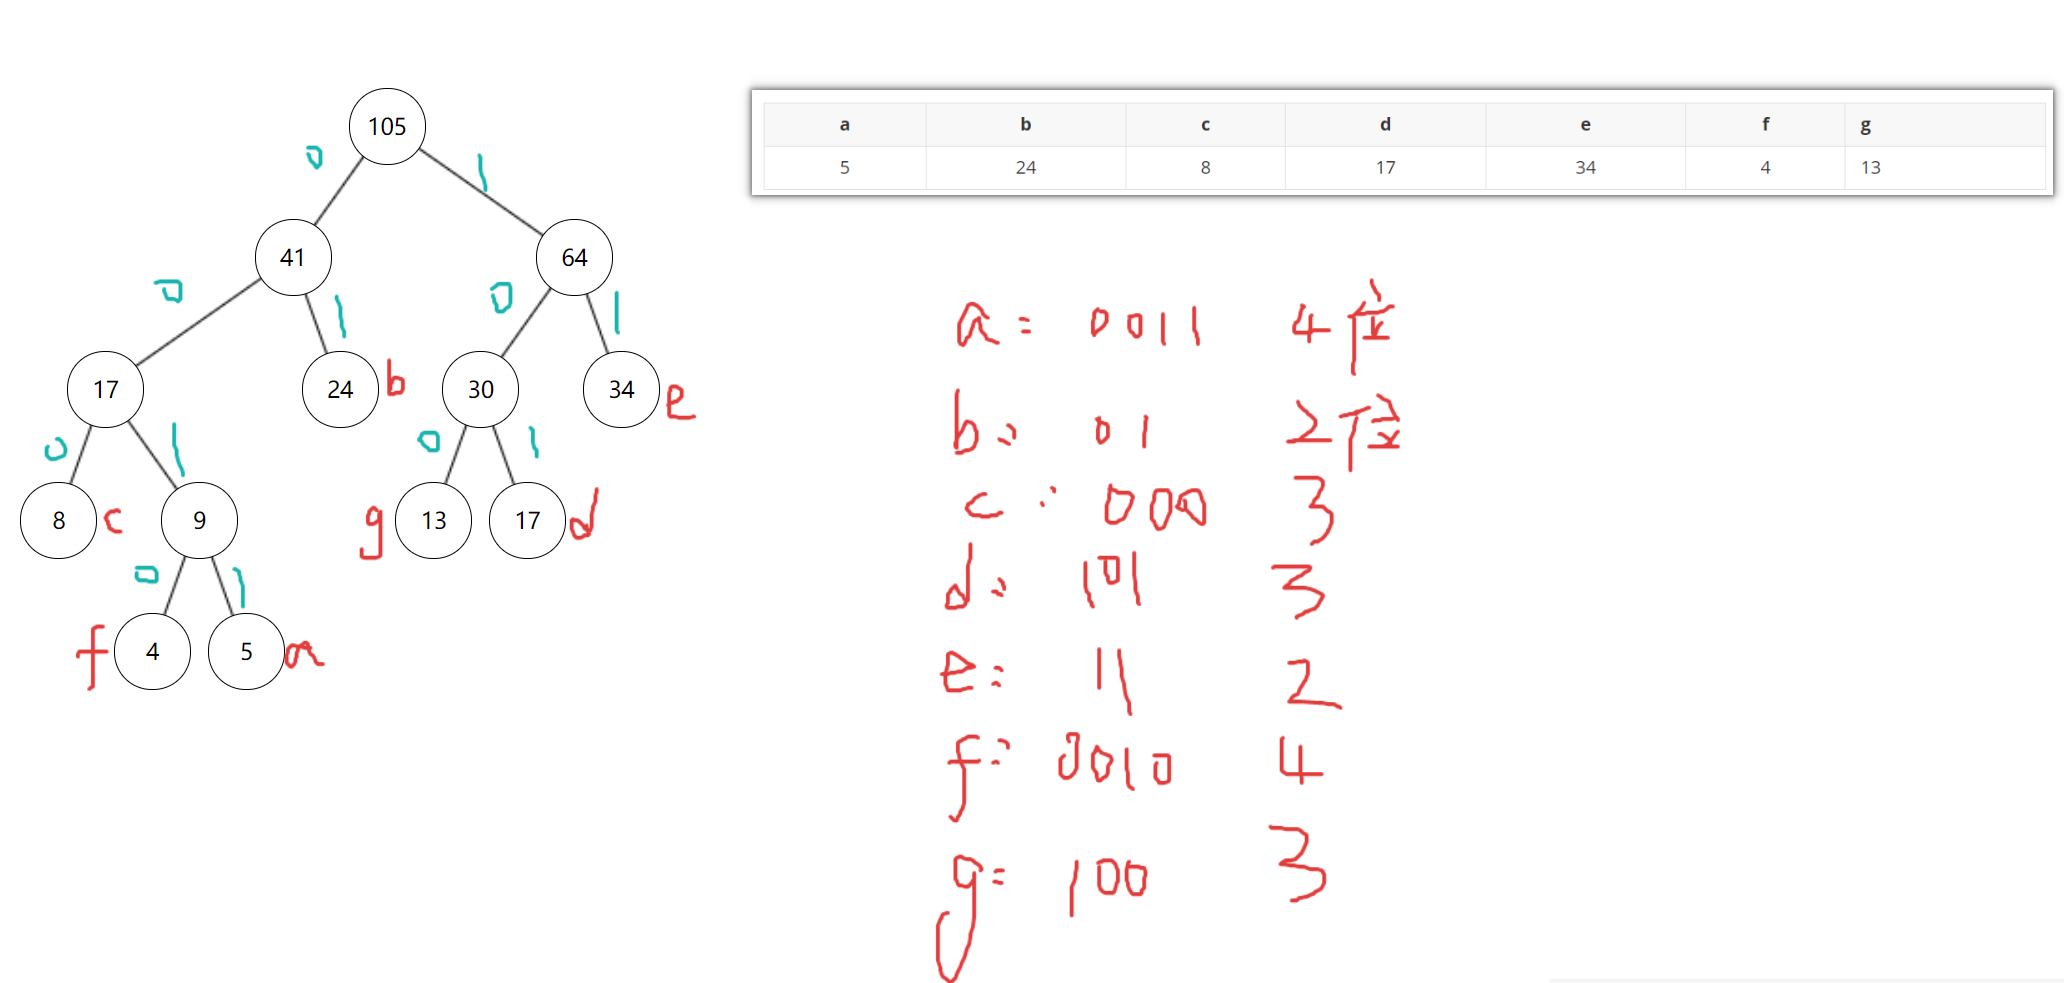 105
0 1
41 64
0 1 0 1
17 24 b 30 34 e
0 1 0 1
8 c 9 g 13 17 d
0 1
f 4 5 a
a b c d e f g
5 24 8 17 34 4 13
a = 0011 4位
b = 01 2位
c = 000 3
d = 101 3
e = 11 2
f = 0010 4
g = 100 3